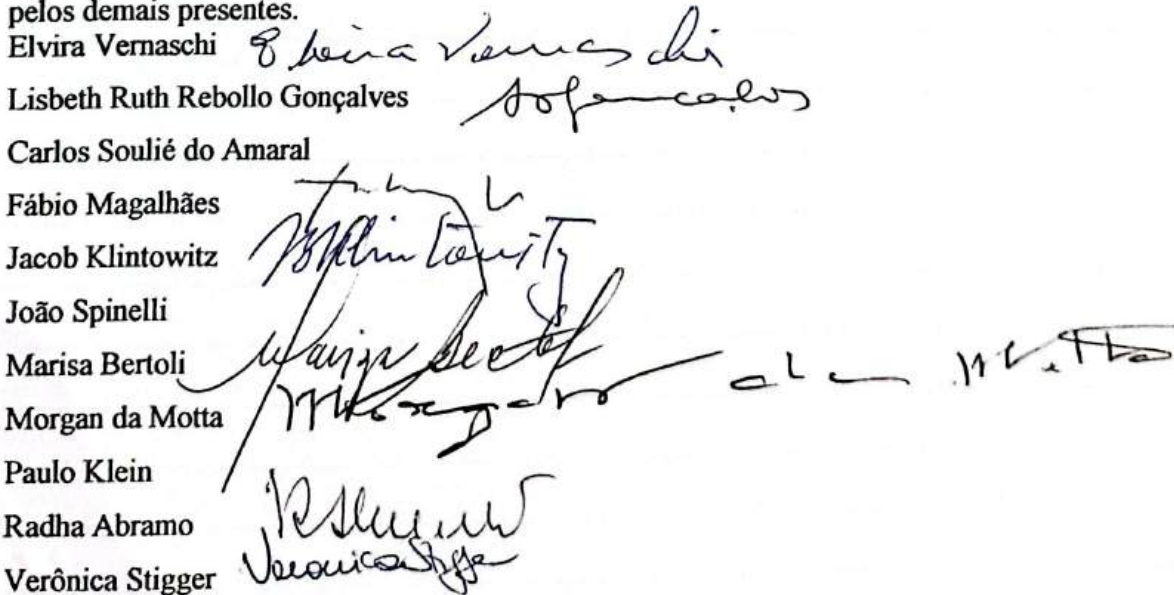 pelos demais presentes.
Elvira Vernaschi Elvira Vernaschi
Lisbeth Ruth Rebollo Gonçalves
Carlos Soulié do Amaral
Fábio Magalhães
Jacob Klintowitz JKlintowitz
João Spinelli
Marisa Bertoli Marisa Bertoli
Morgan da Motta Morgan da Motta
Paulo Klein
Radha Abramo
Verônica Stigger Veronica Stigger